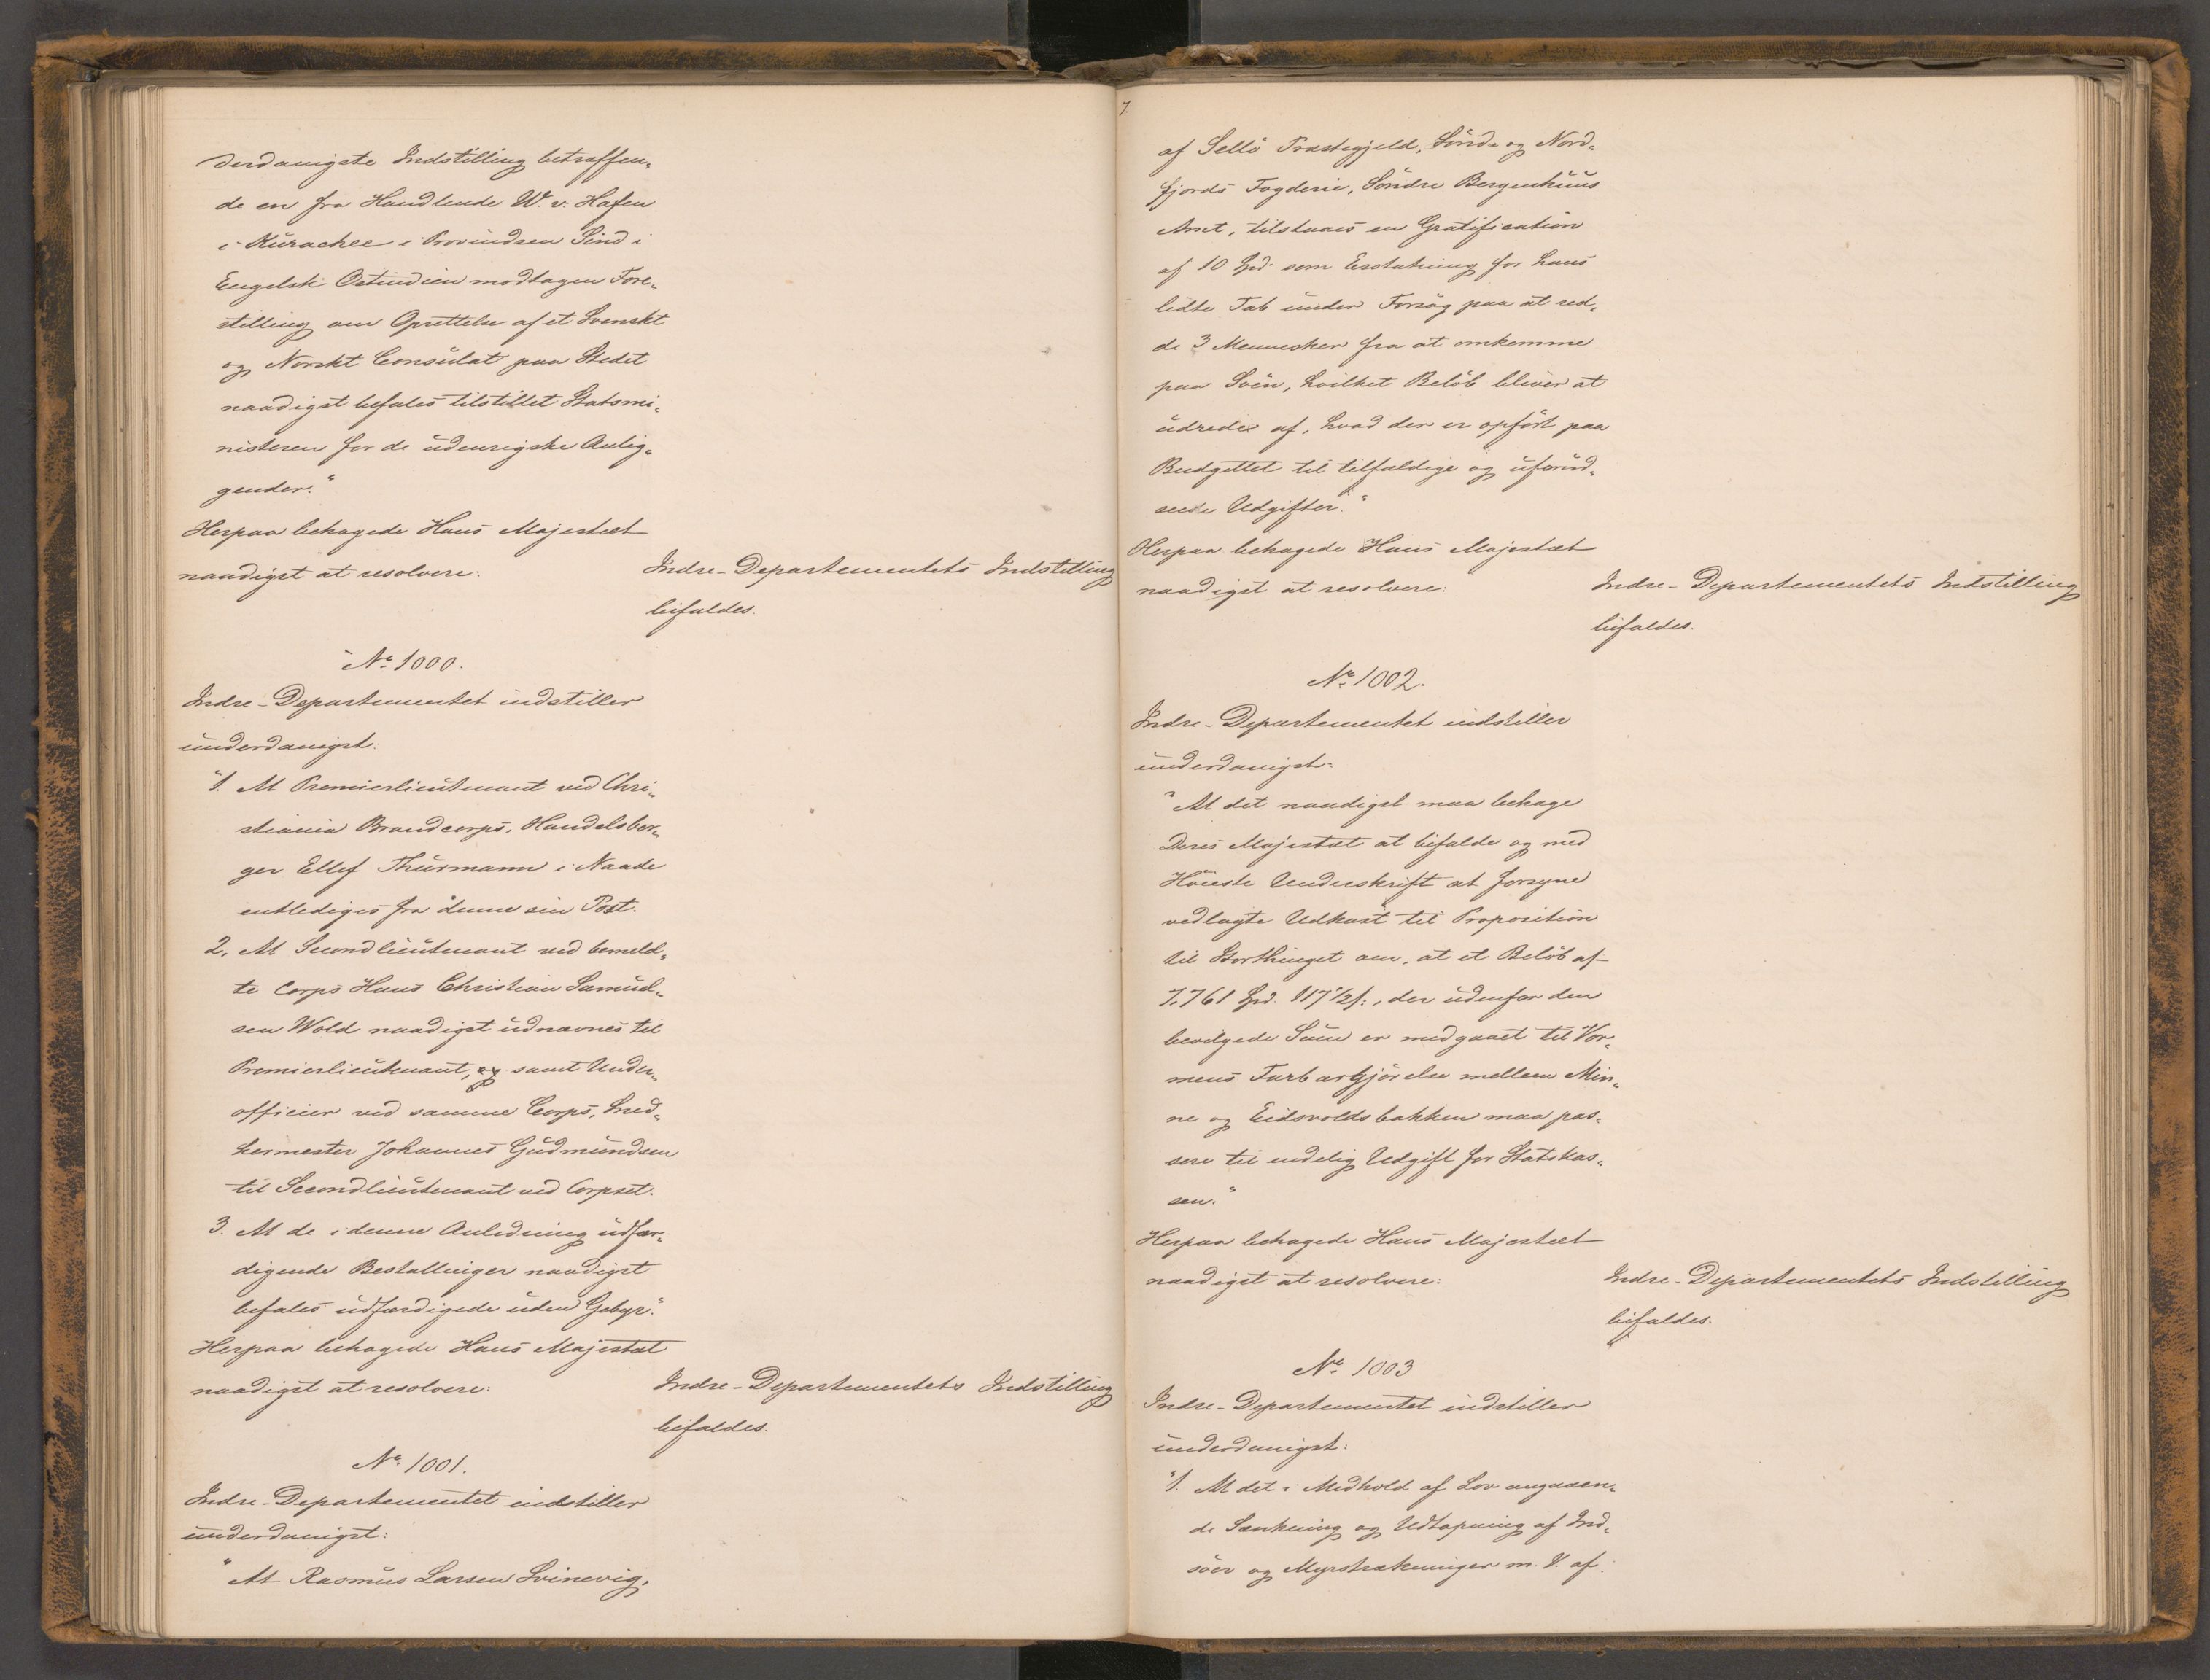 derdanigste Indstilling betræffen„
de en fra Handlende W. v. Hafen
i Kurachee i Provindsen Sind i
Engelsk Ostindien modtagen Fore„
stilling om Oprettelse af et Svenskt
og Norskt Consulat paa Stedet
naadigst befales tilstillet Statsmi„
nisteren for de udenrigske Anlig„
gender."
Herpaa behagede Hans Majestæt
naadigst at resolvere:
Indre-Departementets Indstilling
bifaldes.
No. 1000.
Indre-Departementet indstiller
underdanigst:
"1. At Premierlieutenant ved Chri„
stiania Brandcorps, Handelsbor„
ger Ellef Thurmann i Naade
entlediges fra denne sin Post.
2. At Secondlieutenant ved bemeld„
te Corps Hans Christian Samuel„
sen Wold naadigst udnævnes til
Premierlieutenant, og samt Under„
officier ved samme Corps, Sned„
kermester Johannes Gudmundsen
til Secondlieutenant ved Corpset.
3. At de i denne Anledning udfær„
digende Bestallinger naadigst
befales udfærdigede uden Gebyr."
Herpaa behagede Hans Majestæt
naadigst at resolvere:
Indre-Departementets Indstilling
bifaldes.
No. 1001.
Indre-Departementet indstiller
underdanigst:
"At Rasmus Larsen Svinevig,
7.
af Sellö Præstegjeld, Sönd- og Nord„
fjords Fogderie, Söndre Bergenhuus
Amt, tilstaaes en Gratification
af 10 Spd. som Erstatning for hans
lidte Tab under Forsög paa at red„
de 3 Mennesker fra at omkomme
paa Söen, hvilket Belöb bliver at
udrede af, hvad der er opfört paa
Budgettet til tilfældige og uforud„
seede Udgifter."
Herpaa behagede Hans Majestæt
naadigst at resolvere:
Indre-Departementets Indstilling
bifaldes.
No. 1002.
Indre-Departementet indstiller
underdanigst:
"At det naadigst maa behage
Deres Majestæt at bifalde og med
Höieste Underskrift at forsyne
vedlagte Udkast til Proposition
til Storthinget om, at et Belöb af
7.761 Spd. 117½ s:, der udenfor den
bevilgede Sum er medgaaet til Vor„
mens Farbargjörelse mellem Min„
ne og Eidsvoldsbakken maa pas„
sere til endelig Udgift for Statskas„
sen."
Herpaa behagede Hans Majestæt
naadigst at resolvere:
Indre-Departementets Indstilling
bifaldes.
No. 1003
Indre-Departementet indstiller
underdanigst:
"1. At det i Medhold af Lov angaaen„
de Sænkning og Udtapning af Ind„
söer og Myrstrækninger m. V. af